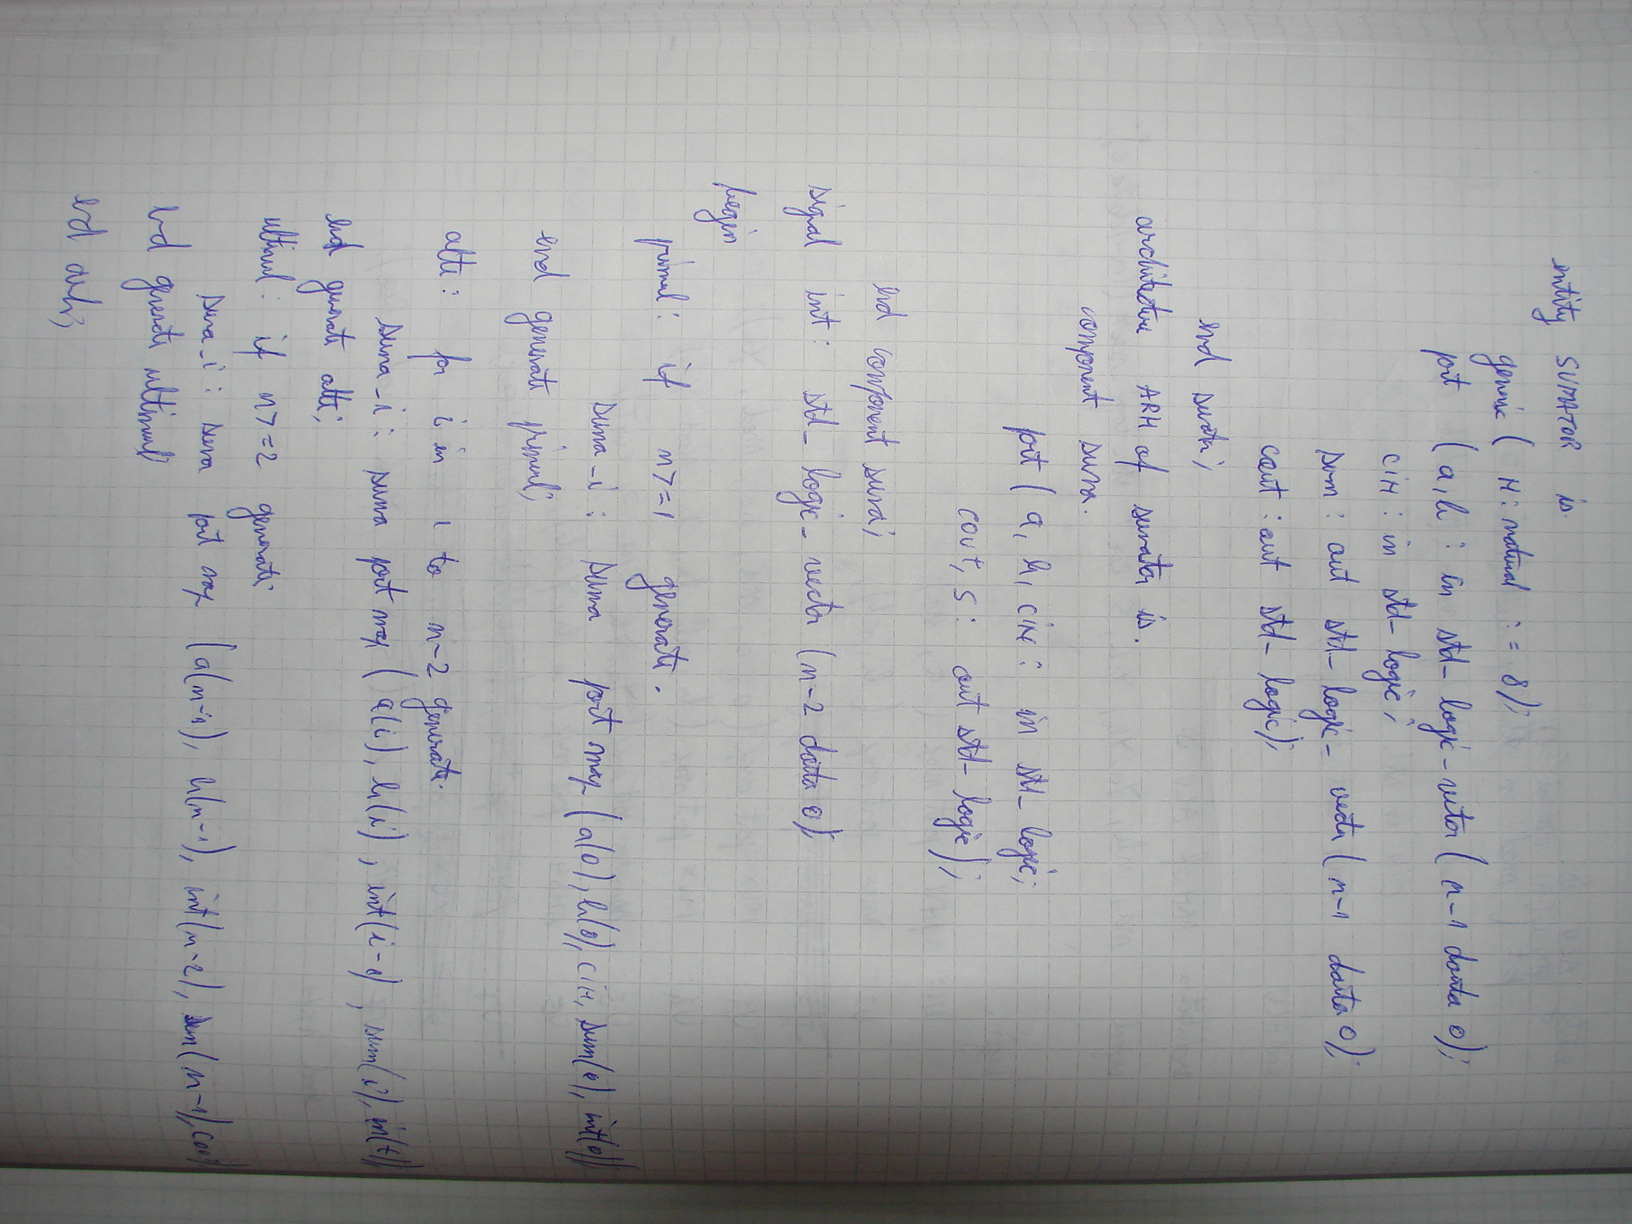 entity SUMATOR is
generic ( N : natural := 8 );
port ( a, b : in std_logic_vector ( n-1 downto 0 );
cin : in std_logic ;
sum : out std_logic_vector ( n-1 downto 0 );
cout : out std_logic );
end sumator ;
architecture ARH of sumator is.
component suma.
port ( a, b, cin : in std_logic ;
cout, s : out std_logic );
end component suma ;
signal int : std_logic_vector ( n-2 downto 0 )
begin
primul : if n>=1 generate.
suma_i : suma port map ( a(0), b(0), cin, sum(0), int(0))
end generate primul ;
alti : for i in 1 to n-2 generate.
suma_i : suma port map ( a(i), b(i), int(i-1), sum(i), int(i))
end generate alti ;
ultimul : if n>=2 generate
suma_i : suma port map (a(n-1), b(n-1), int(n-2), sum(n-1), cout)
end generate ultimul ;
end arh ;